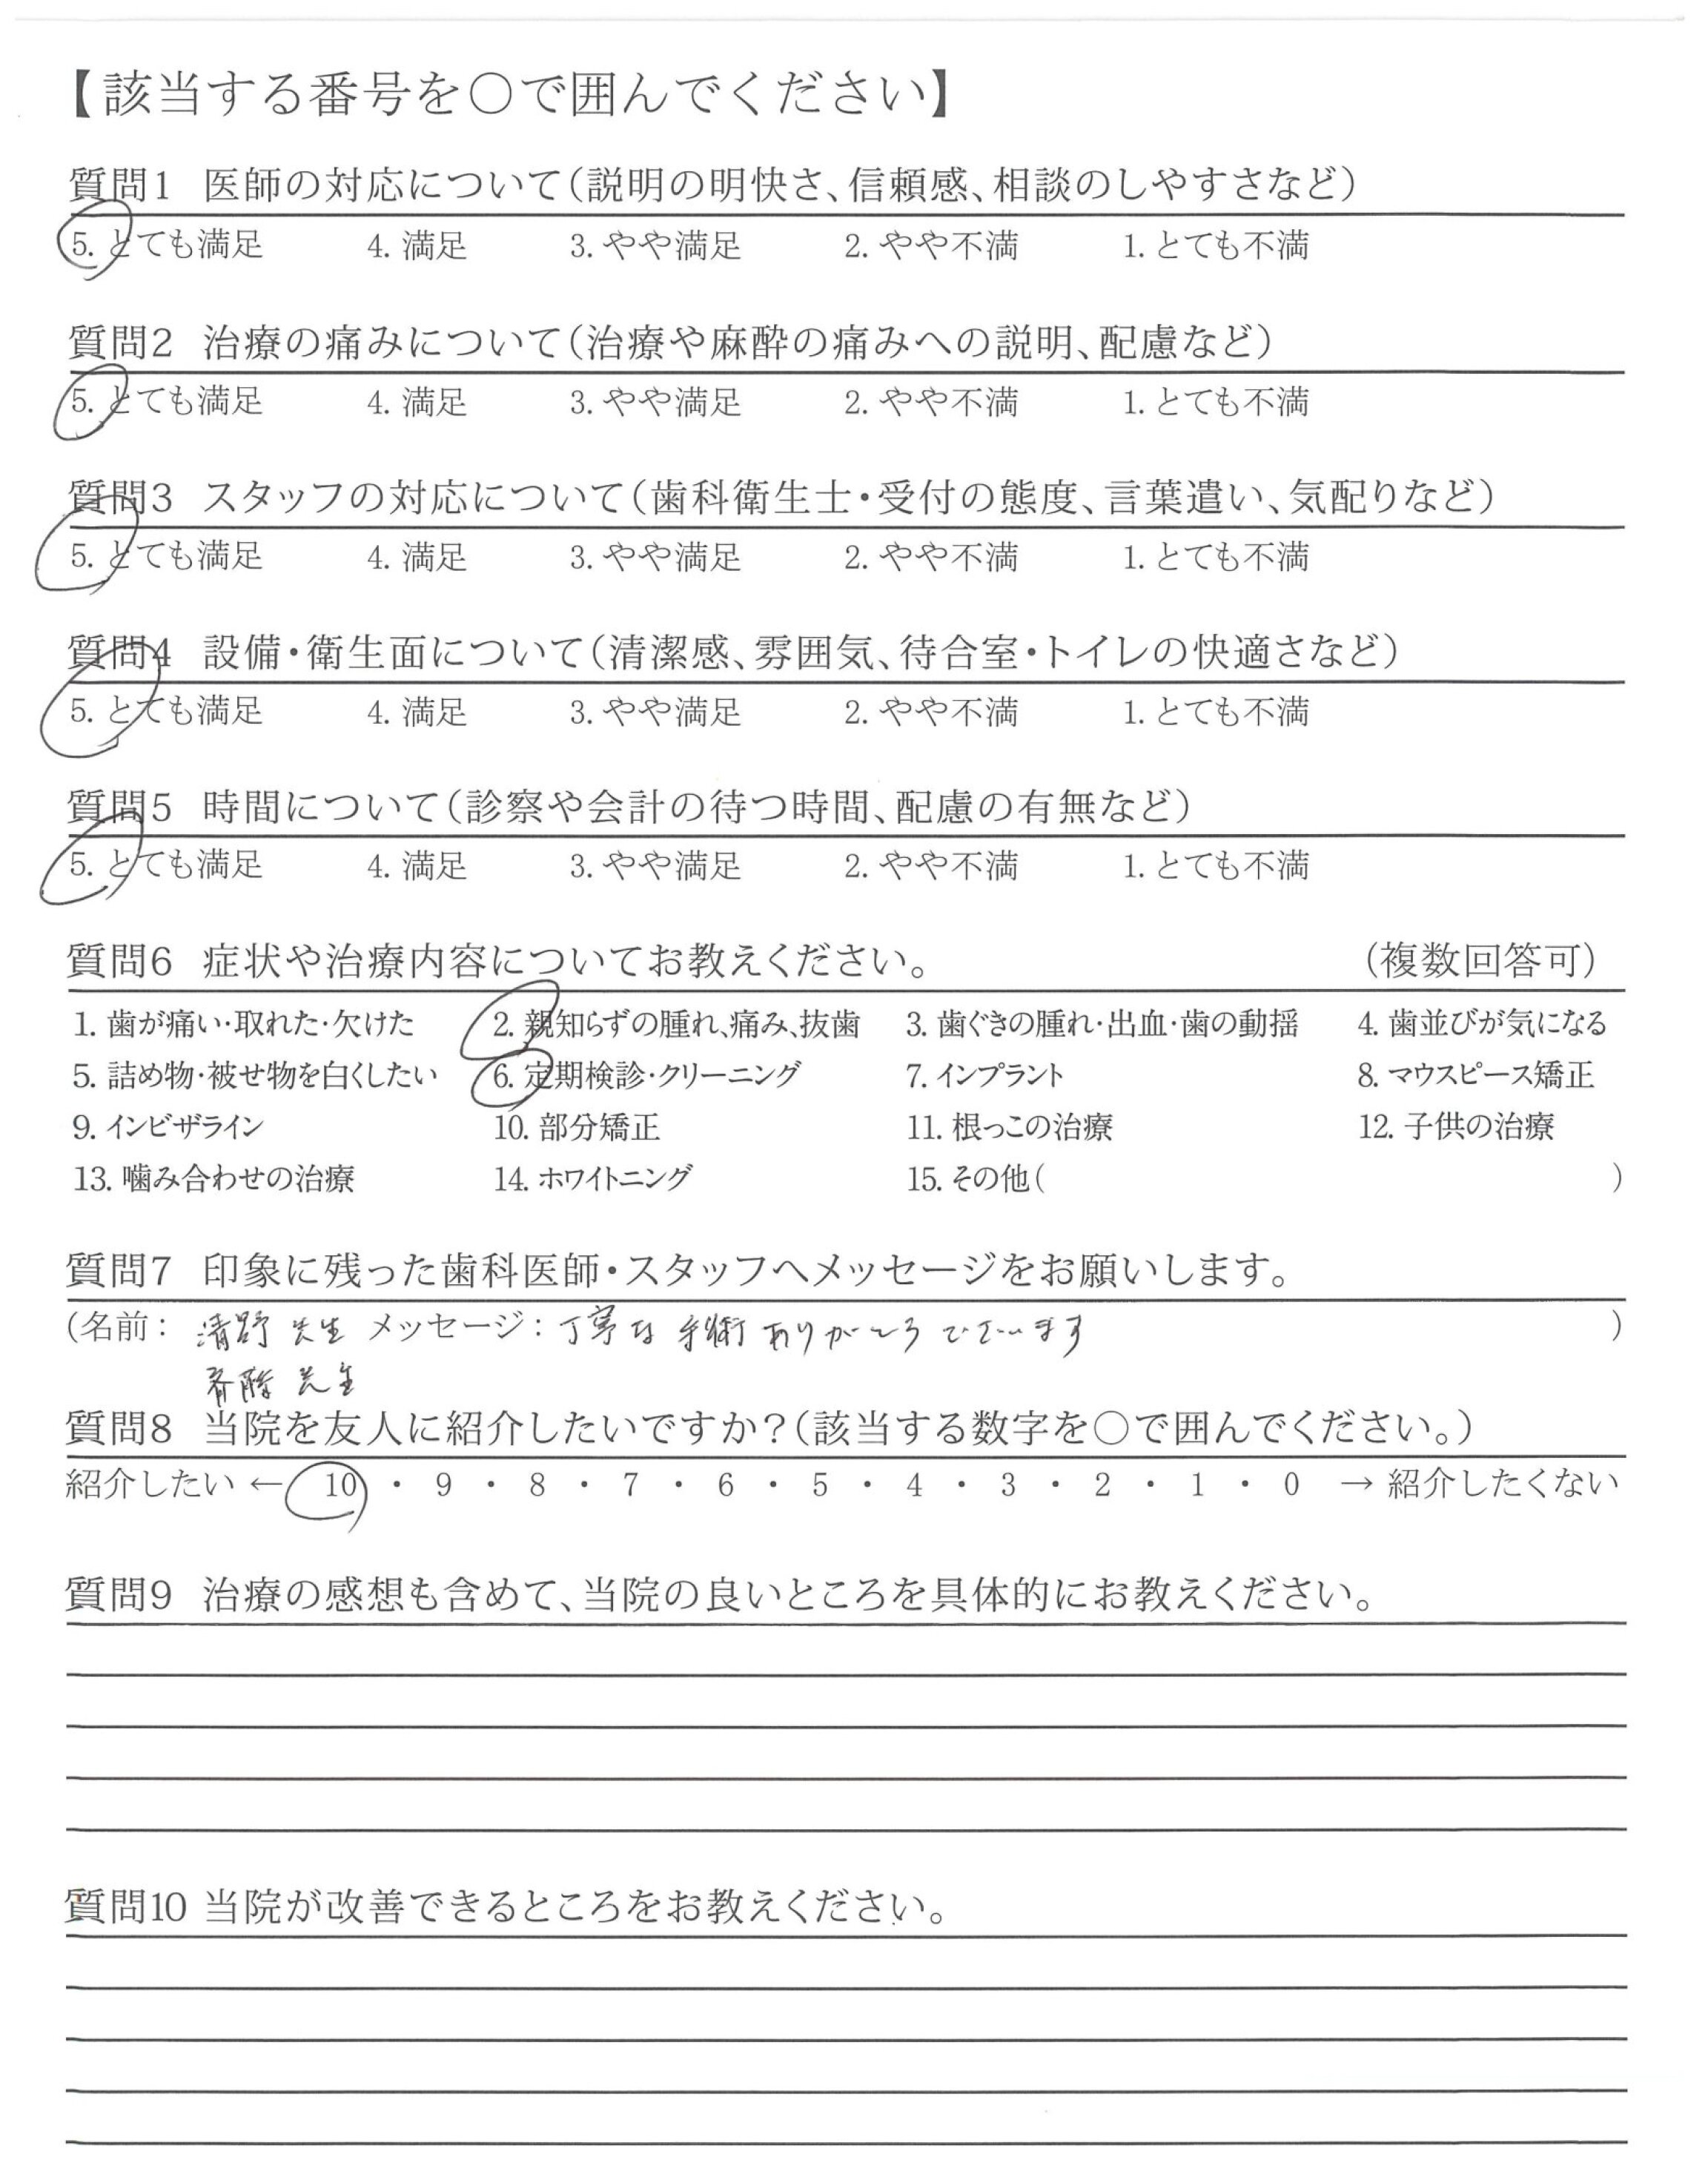 【該当する番号を○で囲んでください】
質問1 医師の対応について(説明の明快さ、信頼感、相談のしやすさなど)
5. とても満足 4. 満足 3. やや満足 2. やや不満 1. とても不満
質問2 治療の痛みについて(治療や麻酔の痛みへの説明、配慮など)
5. とても満足 4. 満足 3. やや満足 2. やや不満 1. とても不満
質問3 スタッフの対応について(歯科衛生士・受付の態度、言葉遣い、気配りなど)
5. とても満足 4. 満足 3. やや満足 2. やや不満 1. とても不満
質問4 設備・衛生面について(清潔感、雰囲気、待合室・トイレの快適さなど)
5. とても満足 4. 満足 3. やや満足 2. やや不満 1. とても不満
質問5 時間について(診察や会計の待つ時間、配慮の有無など)
5. とても満足 4. 満足 3. やや満足 2. やや不満 1. とても不満
質問6 症状や治療内容についてお教えください。 (複数回答可)
1. 歯が痛い・取れた・欠けた 2. 親知らずの腫れ、痛み、抜歯 3. 歯ぐきの腫れ・出血・歯の動揺 4. 歯並びが気になる
5. 詰め物・被せ物を白くしたい 6. 定期検診・クリーニング 7. インプラント 8. マウスピース矯正
9. インビザライン 10. 部分矯正 11. 根っこの治療 12. 子供の治療
13. 噛み合わせの治療 14. ホワイトニング 15. その他( )
質問7 印象に残った歯科医師・スタッフへメッセージをお願いします。
(名前: 清野 先生 メッセージ: 丁寧な 手術 ありがとう ございます )
斉藤 先生
質問8 当院を友人に紹介したいですか?(該当する数字を○で囲んでください。)
紹介したい ← 10 ・ 9 ・ 8 ・ 7 ・ 6 ・ 5 ・ 4 ・ 3 ・ 2 ・ 1 ・ 0 → 紹介したくない
質問9 治療の感想も含めて、当院の良いところを具体的にお教えください。
質問10 当院が改善できるところをお教えください。